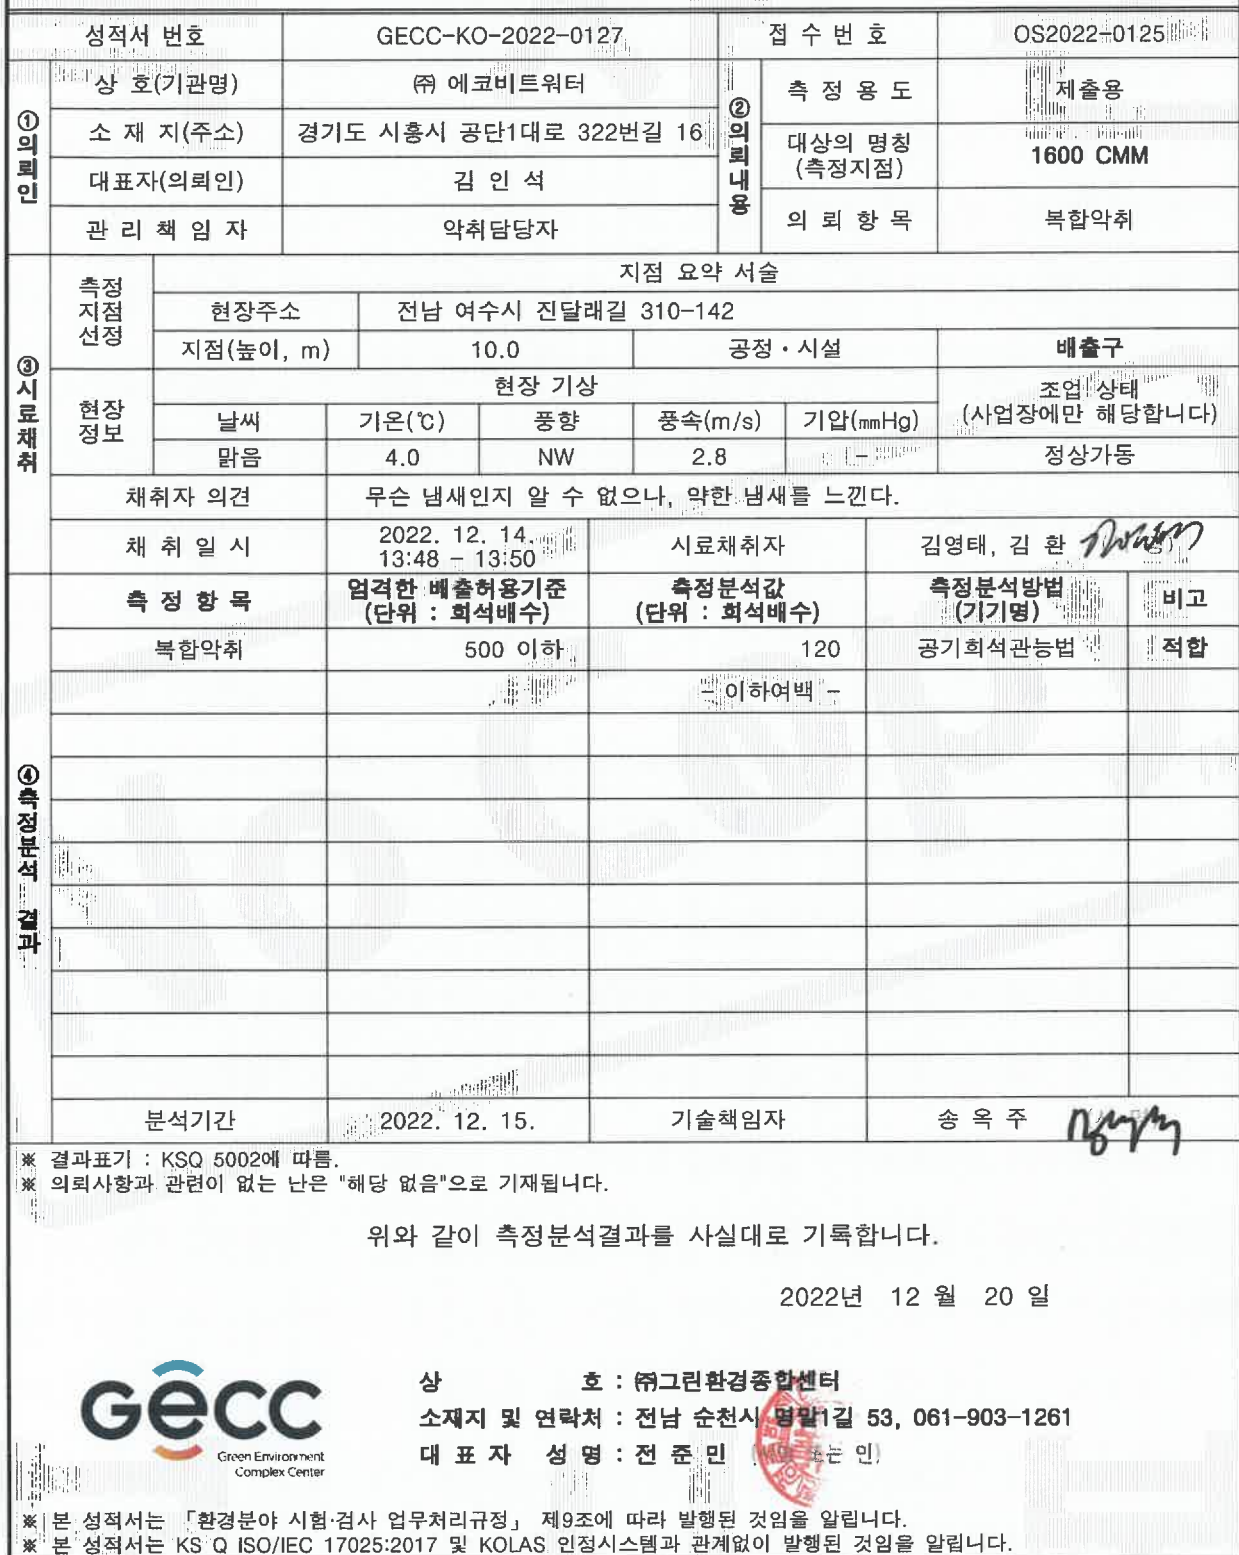 성적서 번호 GECC-KO-2022-0127 접 수 번 호 OS2022-0125
①의뢰인
상 호(기관명) ㈜ 에코비트워터
소 재 지(주소) 경기도 시흥시 공단1대로 322번길 16
대표자(의뢰인) 김 인 석
관 리 책 임 자 악취담당자
②의뢰내용
측 정 용 도 제출용
대상의 명칭 (측정지점) 1600 CMM
의 뢰 항 목 복합악취
③시료채취
측정 지점 선정
지점 요약 서술
현장주소 전남 여수시 진달래길 310-142
지점(높이, m) 10.0 공정·시설 배출구
현장 정보
현장 기상
조업 상태
(사업장에만 해당합니다)
날씨 기온(℃) 풍향 풍속(m/s) 기압(mmHg)
맑음 4.0 NW 2.8 - 정상가동
채취자 의견 무슨 냄새인지 알 수 없으나, 약한 냄새를 느낀다.
채 취 일 시 2022. 12. 14. 13:48 - 13:50 시료채취자 김영태, 김 환
④측정분석 결과
측 정 항 목 엄격한 배출허용기준 (단위 : 희석배수) 측정분석값 (단위 : 희석배수) 측정분석방법 (기기명) 비고
복합악취 500 이하 120 공기희석관능법 적합
- 이하여백 -
분석기간 2022. 12. 15. 기술책임자 송 옥 주
※ 결과표기 : KSQ 5002에 따름.
※ 의뢰사항과 관련이 없는 난은 "해당 없음"으로 기재됩니다.
위와 같이 측정분석결과를 사실대로 기록합니다.
2022년 12 월 20 일
GECC
Green Environment
Complex Center
상 호 : ㈜그린환경종합센터
소재지 및 연락처 : 전남 순천시 명말1길 53, 061-903-1261
대 표 자 성 명 : 전 준 민 (서명 또는 인)
※ 본 성적서는 「환경분야 시험·검사 업무처리규정」 제9조에 따라 발행된 것임을 알립니다.
※ 본 성적서는 KS Q ISO/IEC 17025:2017 및 KOLAS 인정시스템과 관계없이 발행된 것임을 알립니다.